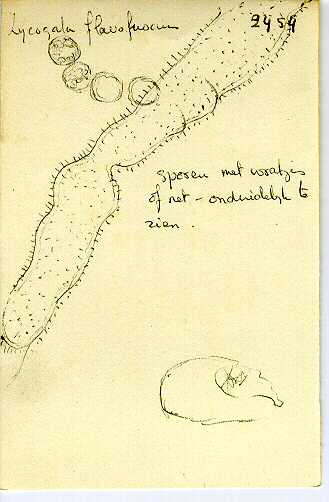 Lycogala flavofuscum
2454
sporen met wratjes
of net - onduidelijk te
zien.